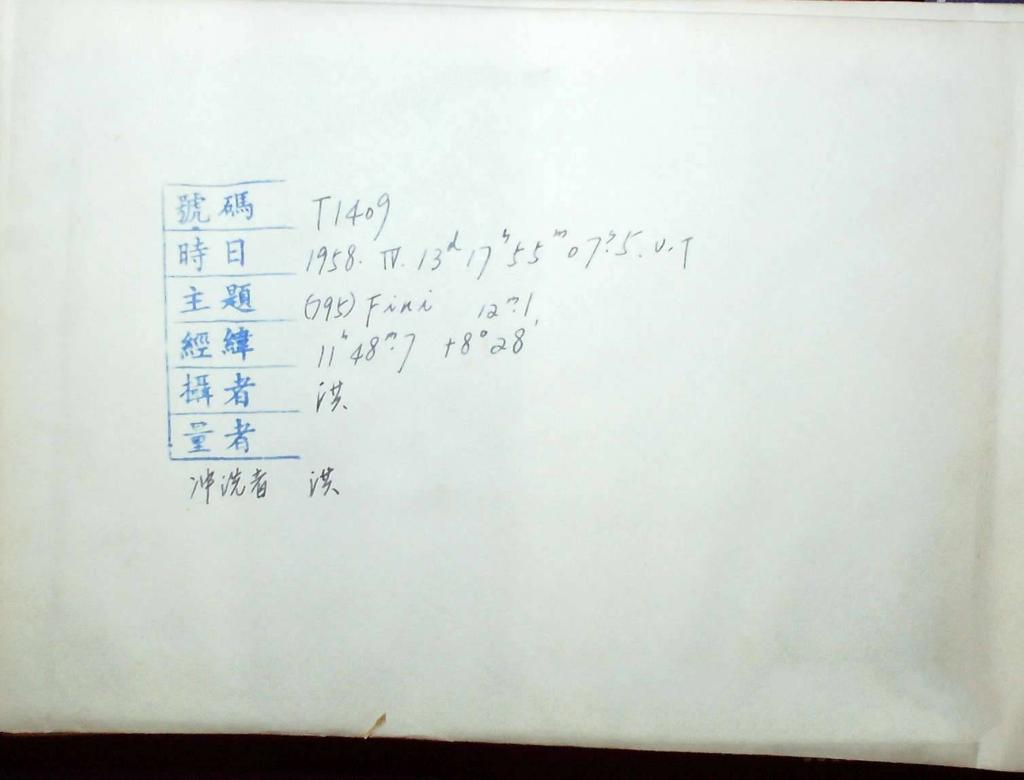 號碼 T1409
時日 1958. IV. 13ᵈ 17ʰ 55ᵐ 07ˢ.5. U.T
主題 (795) Fini 12ᵐ.1
經緯 11ʰ 48ᵐ.7 +8°28'
攝者 洪
量者
冲洗者 洪